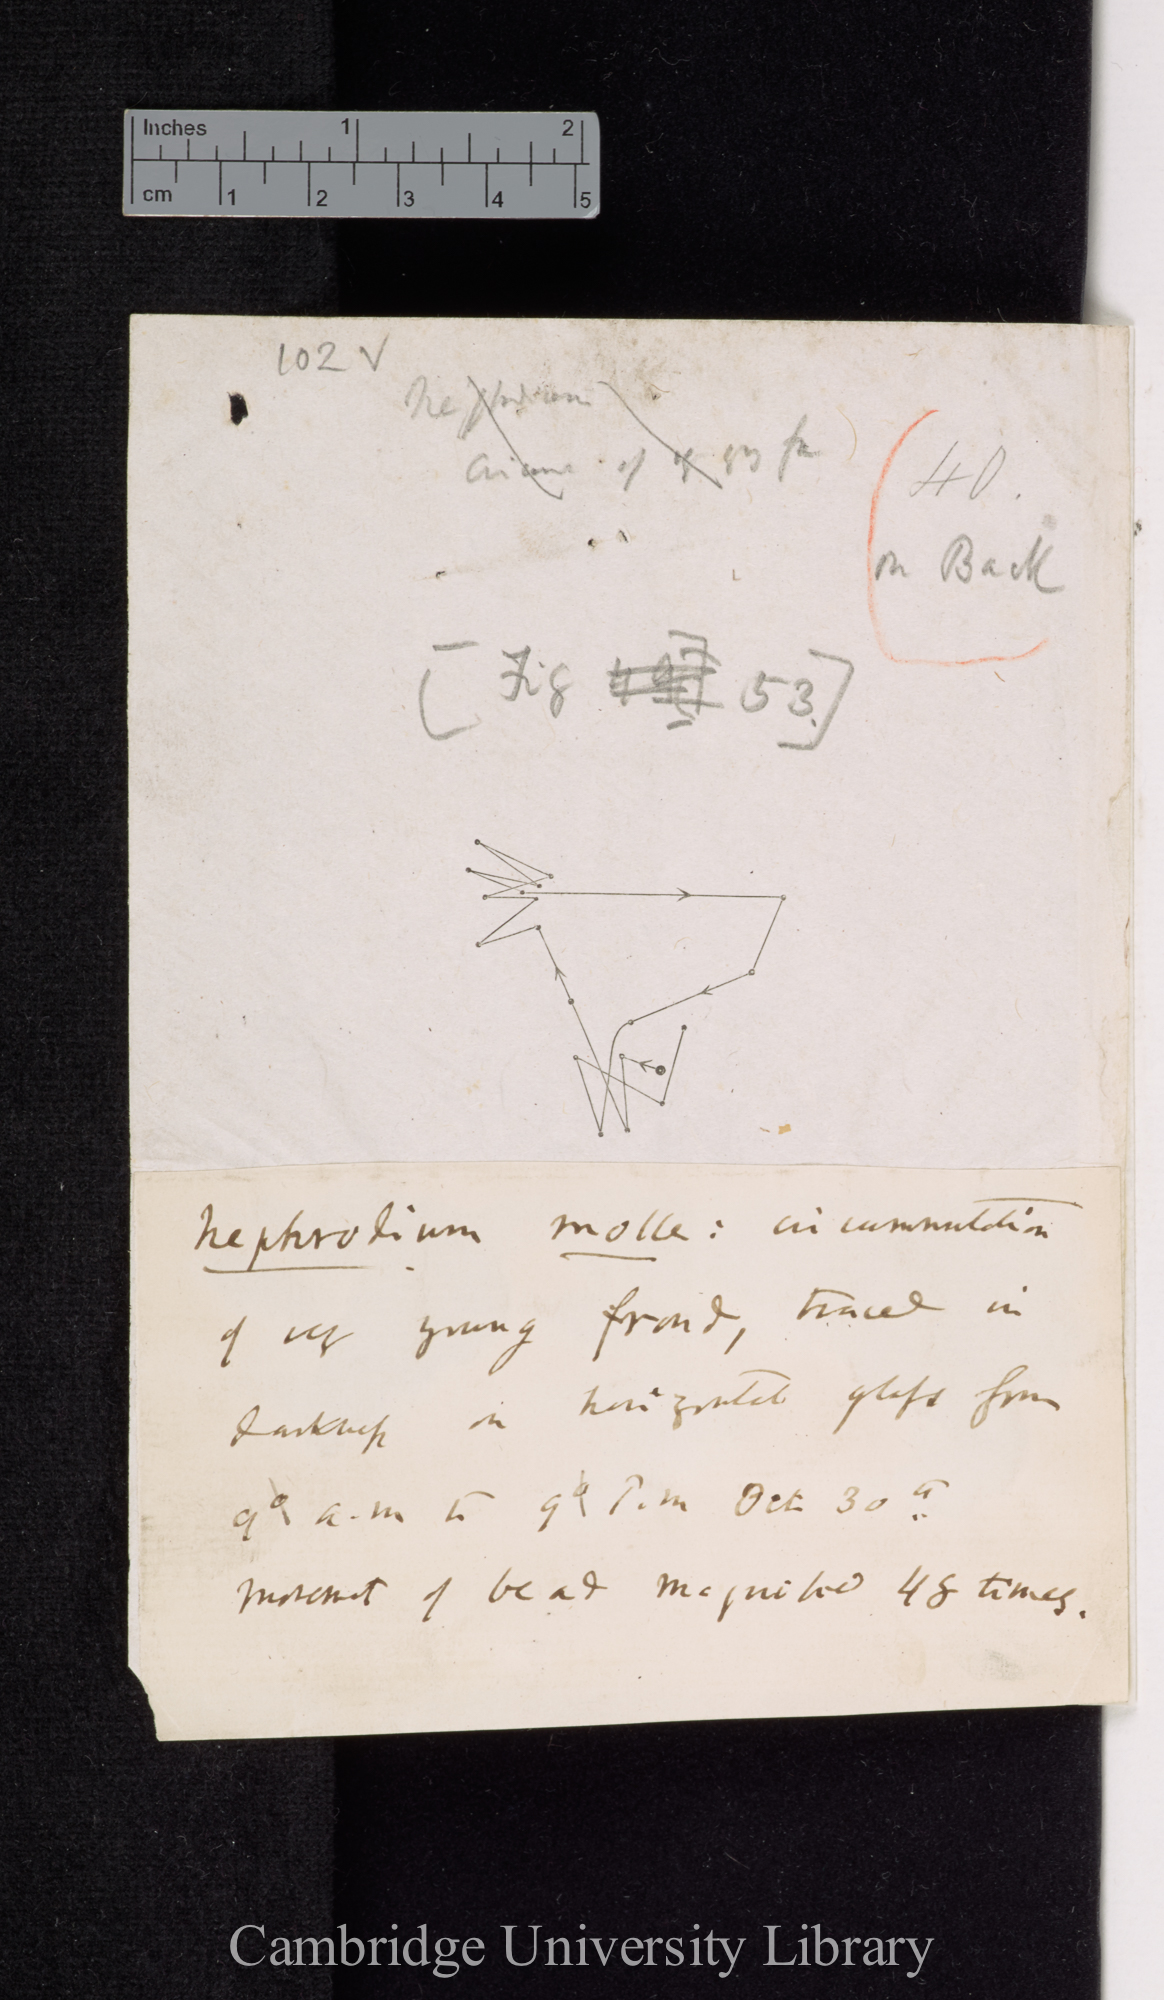 Inches 1 2
cm 1 2 3 4 5
102 V
Nephrodium
Circum of vy yng fr
40.
on Back
[Fig 53.]
Nephrodium molle: circumnutation
of very young frond, traced in
darkness on horizontal glass from
9° a.m to 9° P.m Oct 30th
movement of bead magnified 48 times.
Cambridge University Library